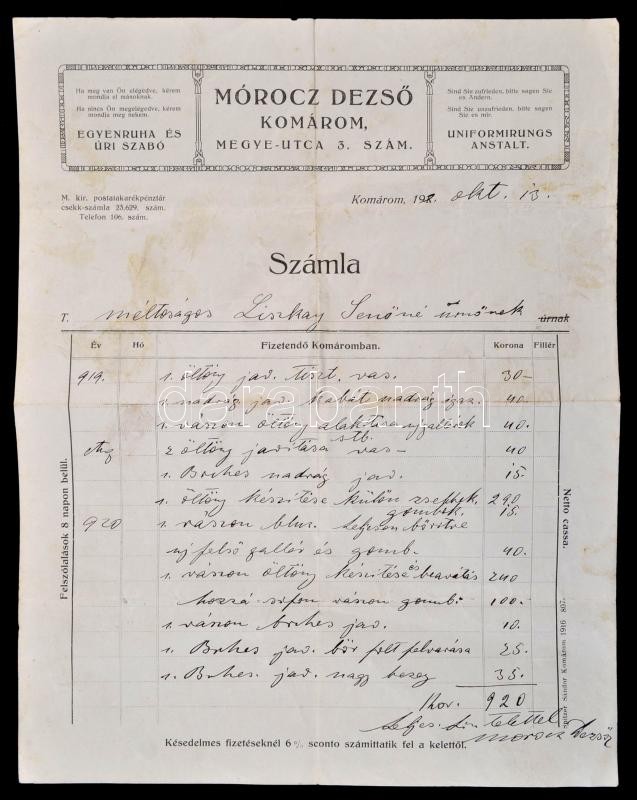 Ha meg van Ön elégedve, kérem
mondja el másoknak.
Ha nincs Ön megelégedve, kérem
mondja meg nekem.
EGYENRUHA ÉS
ÚRI SZABÓ
MÓROCZ DEZSŐ
KOMÁROM,
MEGYE-UTCA 3. SZÁM.
Sind Sie zufrieden, bitte sagen Sie
es Andern.
Sind Sie unzufrieden, bitte sagen
Sie es mir.
UNIFORMIRUNGS
ANSTALT.
M. kir. postatakarékpénztár
csekk-számla 23.629. szám.
Telefon 106. szám.
Komárom, 192. okt. 13.
Számla
T. méltoságos Liszkay Jenőné úrnőnek úrnak
Év Hó Fizetendő Komáromban. Korona Fillér
919. 1. öltöny jav. tiszt. vas. 30-
1. nadrág jav. kabát nadrág 40.
1. vászon öltöny alakitása 40.
stb.
2 öltöny javitása vas- 40
1. Briches nadrág jav. 15.
1. öltöny készitése külön zsebbek. 290
gombok. 15.
920 1. vászon blus. teljesen böritve
uj felső gallér és gomb. 40.
1. vászon öltöny készitése és beavatás 240
hozzá sifon vászon gomb. 100.-
1. vászon briches jav. 10.
1. Briches jav. bőr folt felvarása 25.
1. Briches. jav. nagy 35.
Kor. 920
tisztelettel
Morocz Dezső
Késedelmes fizetéseknél 6% sconto számittatik fel a kelettől.
Felszólalások 8 napon belül.
Netto cassa.
Spitzer Sándor Komárom 1916 807.
darabanth